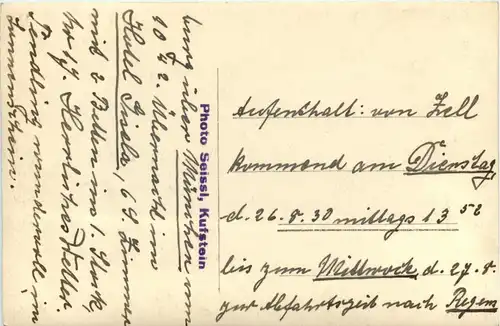 Aufenthalt: von Zell
kommend am Dienstag
d. 26.8.30 mittags 13 52
bis zum Mittwoch, d. 27.8.
zur Abfahrtszeit nach Regens
burg über München um
10 42. Übernacht im
Hotel Gisela, 64 Zimmer
mit 2 Betten im 1. Stock,
Nr 17. Herrliches Wetter
Pendling wundervoll im
Sonnenschein.
Photo Seissl, Kufstein